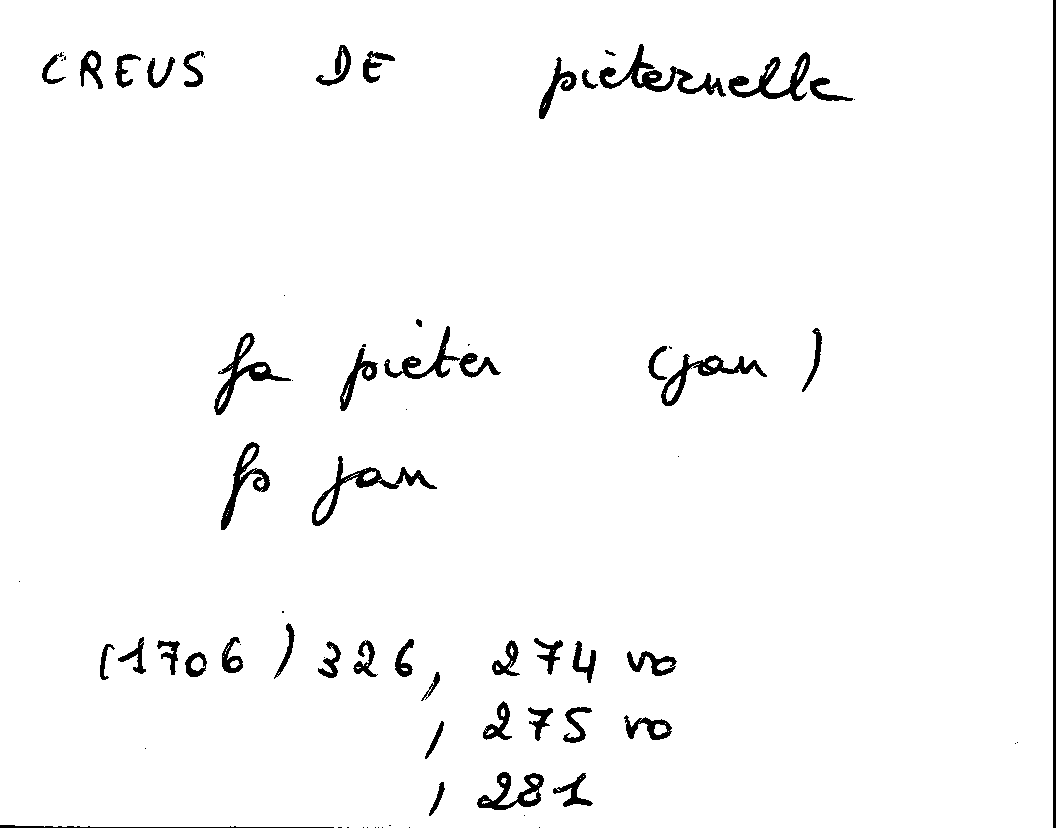 CREUS DE pieternelle
fa pieter (jan)
fs jan
(1706) 326, 274 vo
, 275 vo
, 281